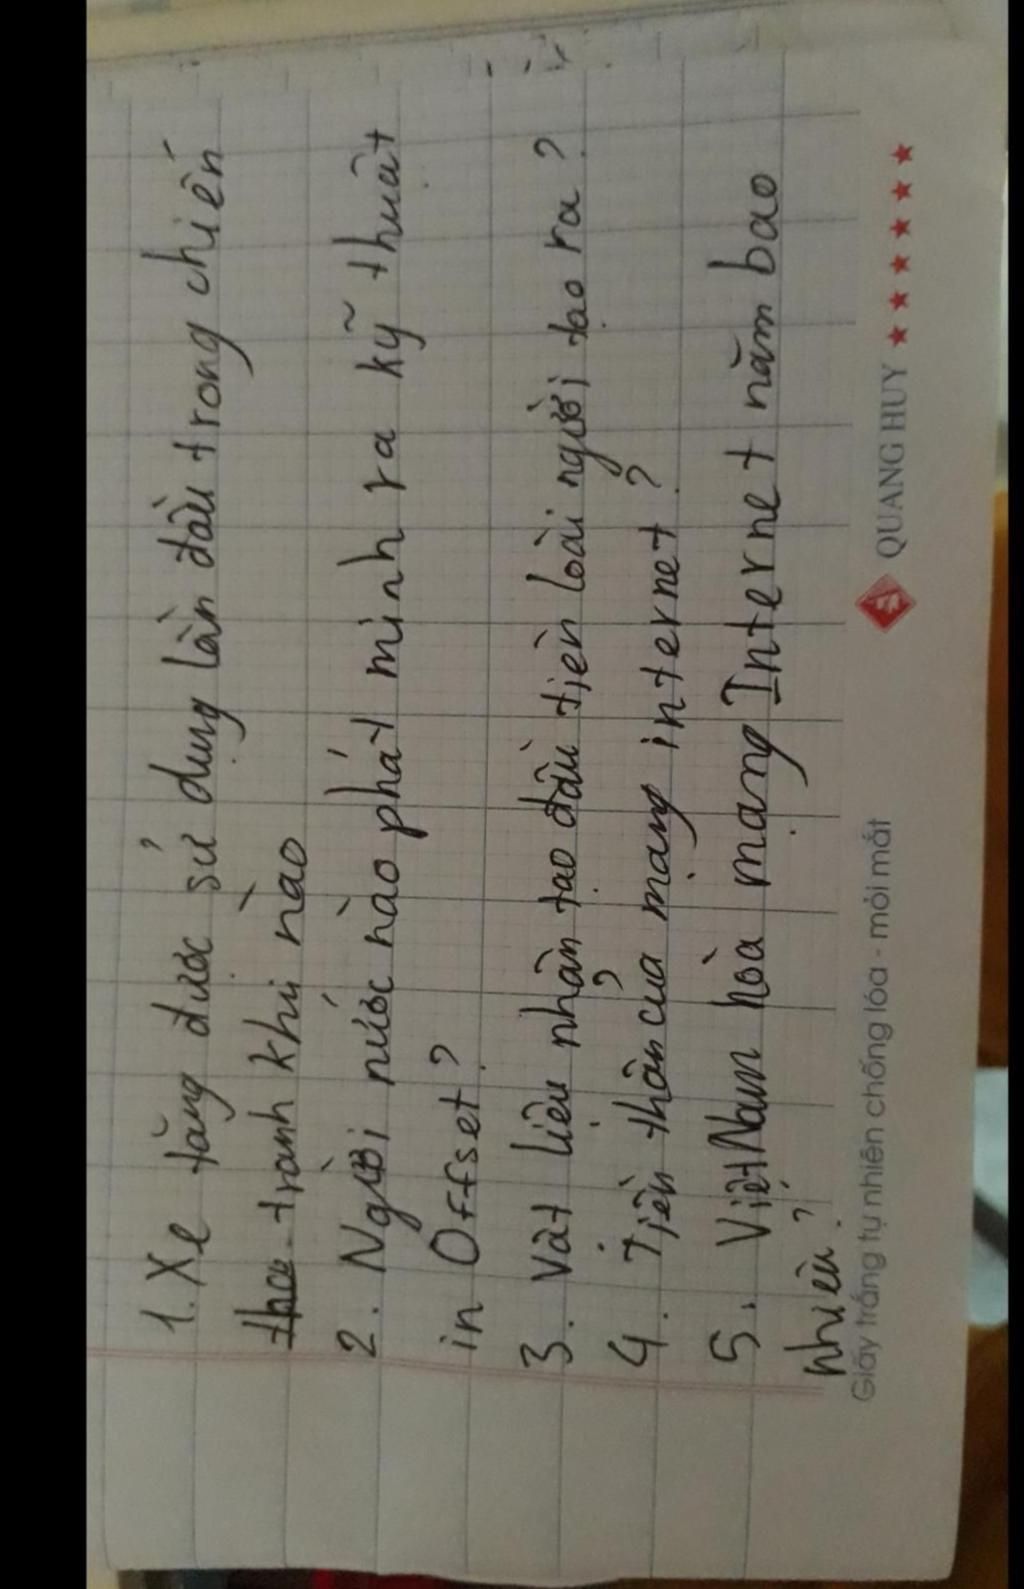 1. Xe tăng được sử dụng lần đầu trong chiến
tranh khi nào
2. Người nước nào phát minh ra kỹ thuật
in Offset?
3. Vật liệu nhân tạo đầu tiên loài người tạo ra?
4. Tiền thân của mạng internet?
5. Việt Nam hòa mạng Internet năm bao
nhiêu?
Giấy trắng tự nhiên chống lóa - mỏi mắt QUANG HUY ★★★★★★